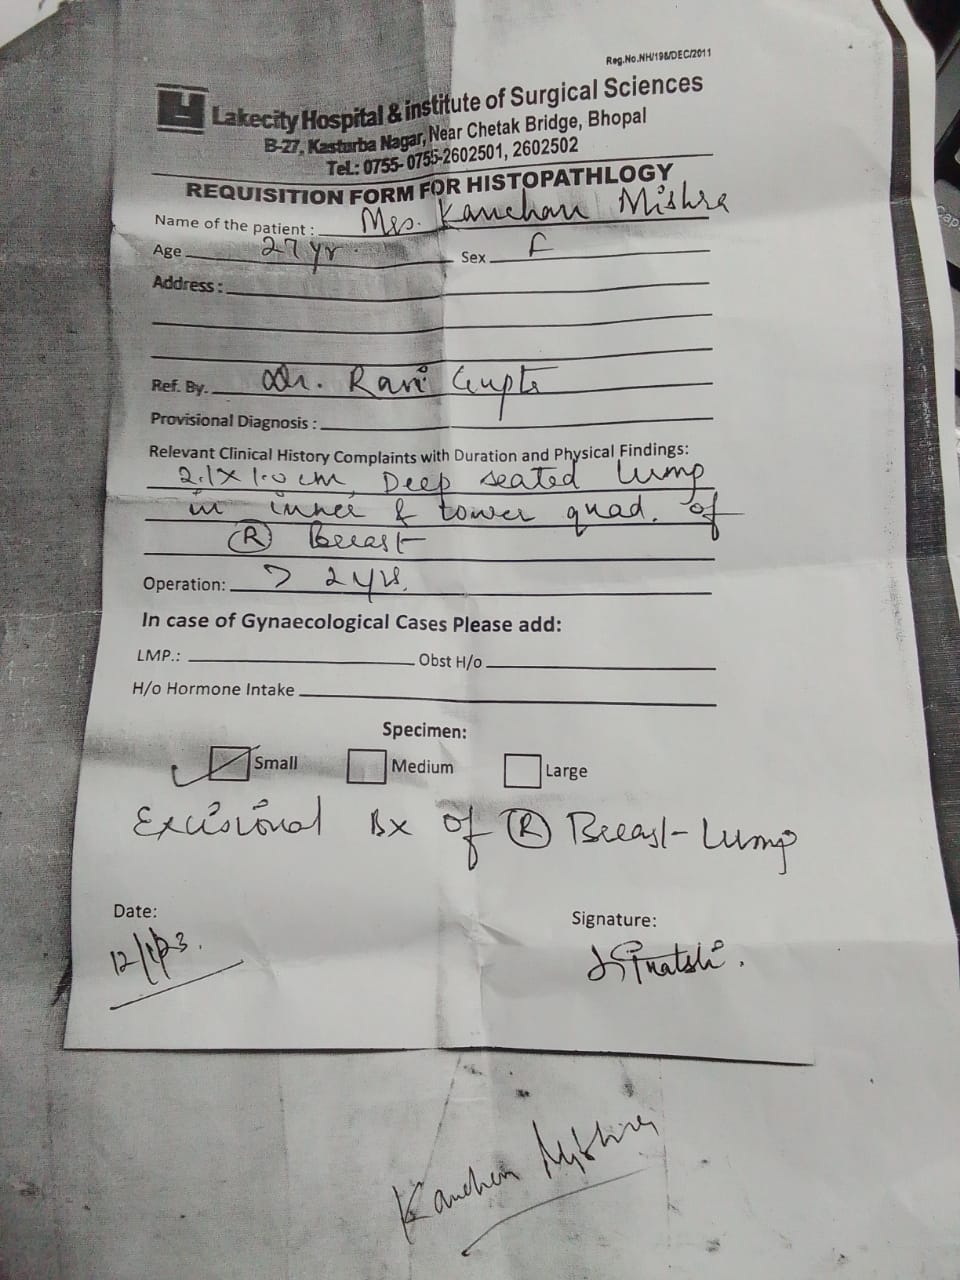 Reg.No.NH/198/DEC/2011
Lakecity Hospital & institute of Surgical Sciences
B-27, Kasturba Nagar, Near Chetak Bridge, Bhopal
Tel.: 0755- 0755-2602501, 2602502
REQUISITION FORM FOR HISTOPATHLOGY
Name of the patient : Mrs. Kanchan Mishra
Age 27 yr. Sex F
Address :
Ref. By. Dr. Ravi Gupta
Provisional Diagnosis :
Relevant Clinical History Complaints with Duration and Physical Findings:
2.1 x 1.0 cm, Deep seated lump
in inner & lower quad. of
(R) Breast
Operation: > 2 yrs.
In case of Gynaecological Cases Please add:
LMP.: Obst H/o
H/o Hormone Intake
Specimen:
Small Medium Large
Excisional Bx of (R) Breast Lump
Date: Signature:
12/1/23.
Kanchan Mishra